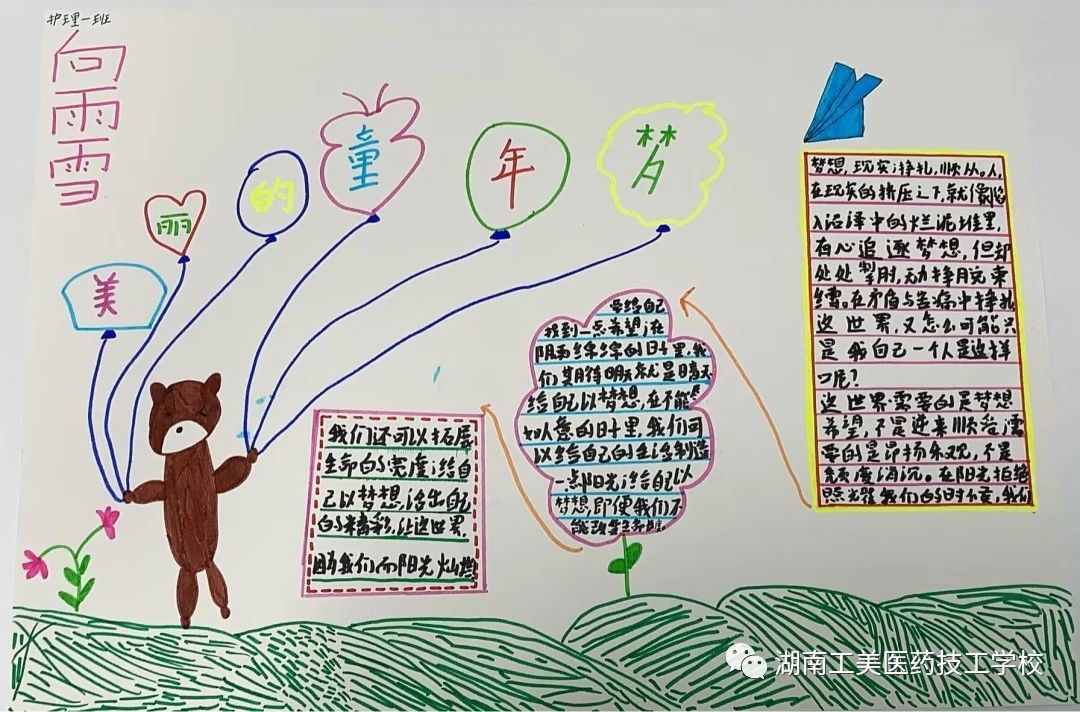 护理一班
向雨雪
美丽的童年梦
梦想，现实；挣扎，顺从。人，
在现实的挤压之下，就像陷
入沼泽中的烂泥堆里，
有心追逐梦想，但却
处处掣肘，无力挣脱束
缚。在矛盾与苦痛中挣扎
这世界，又怎么可能只
是我自己一个人是这样
呢？
这世界需要的是梦想
希望，不是逆来顺受；需
要的是昂扬乐观，不是
颓废消沉。在阳光拒绝
照耀我们的时候，我们
要给自己
找到一点希望；在
阴雨绵绵的日子里，我
们期待明天就是晴天
给自己以梦想，在不能尽
如人意的日子里，我们可
以给自己的生活制造
一点阳光；给自己以
梦想，即便我们不
能改变
我们还可以拓展
生命的宽度；给自
己以梦想，活出自己
的精彩，让这世界，
因为我们而阳光灿烂
湖南工美医药技工学校